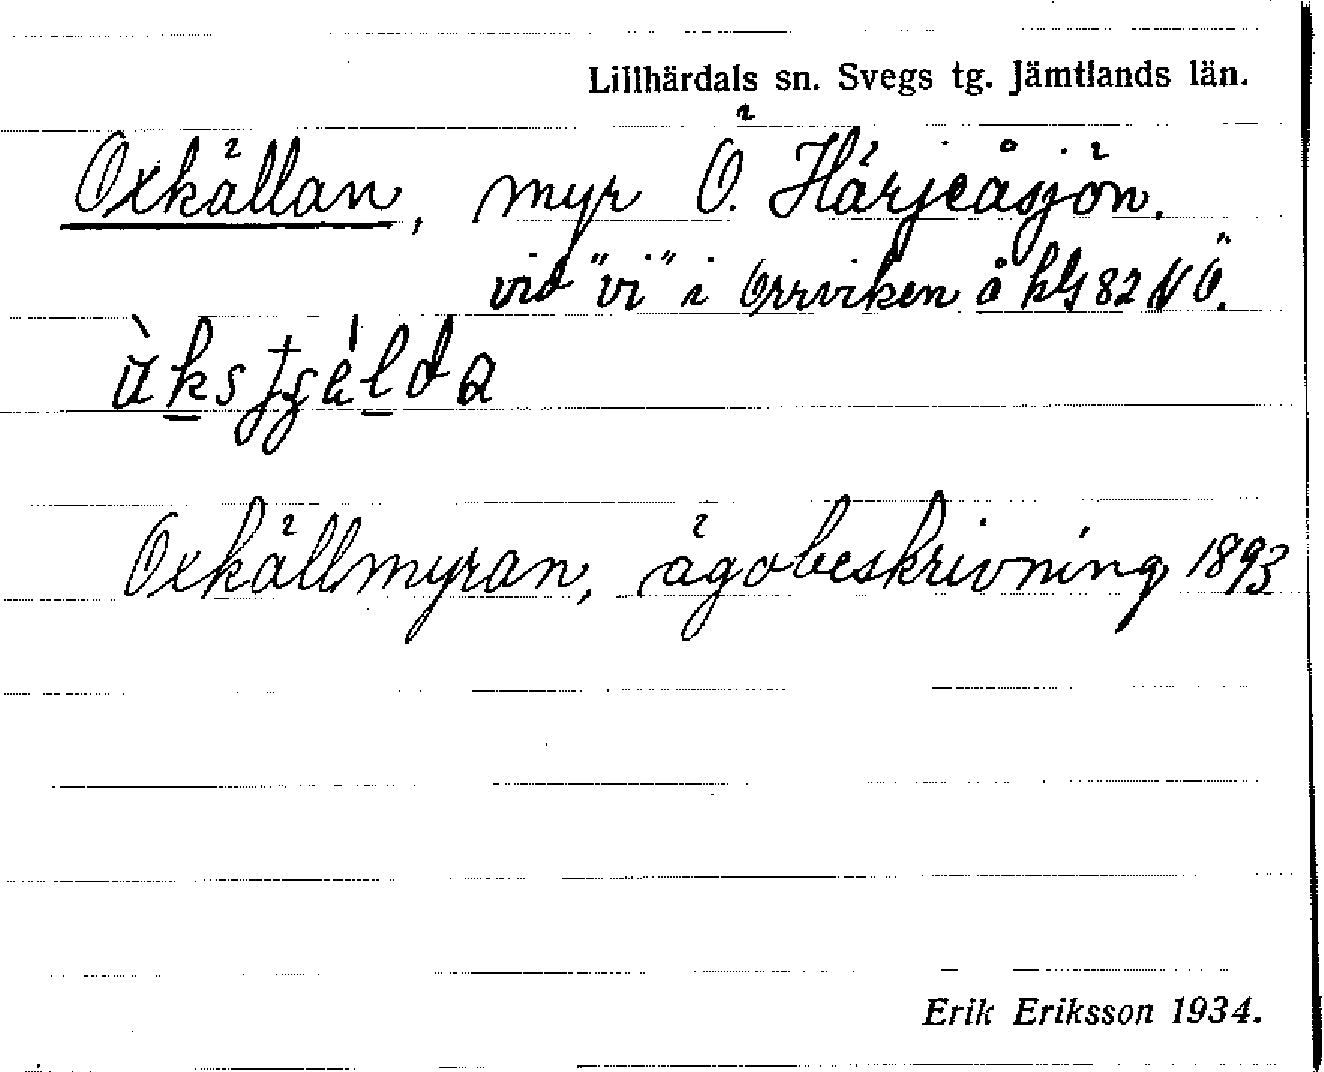 Lillhärdals sn. Svegs tg. Jämtlands län.
Oxkällan, myr Ö. Härjeåsjön.
vid "vi" i Orrviken å kbl 82 N Ö.
Oxkällmyran, ägobeskrivning 1893
Erik Eriksson 1934.